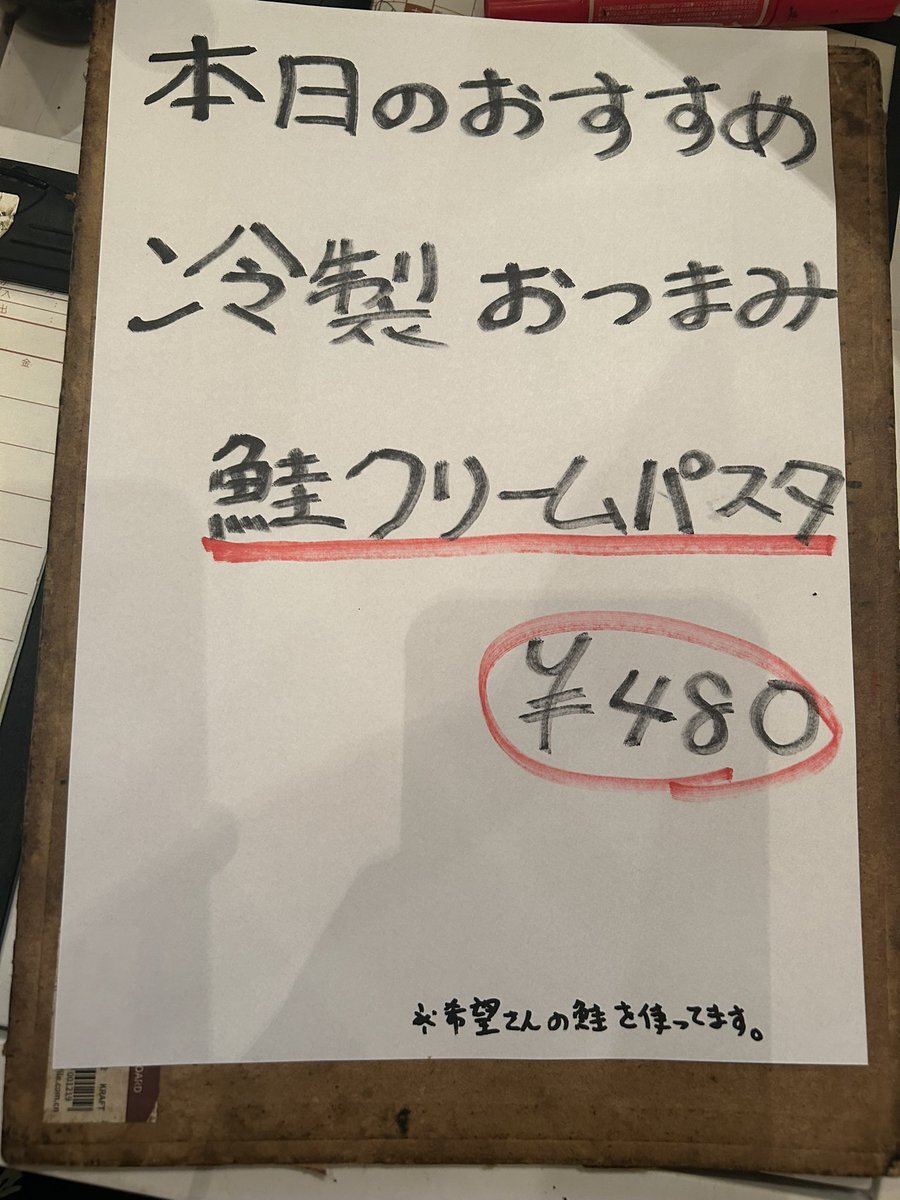 本日のおすすめ
冷製 おつまみ
鮭クリームパスタ
¥480
※希望さんの鮭を使ってます。
出
金
BOARD
KRAFT